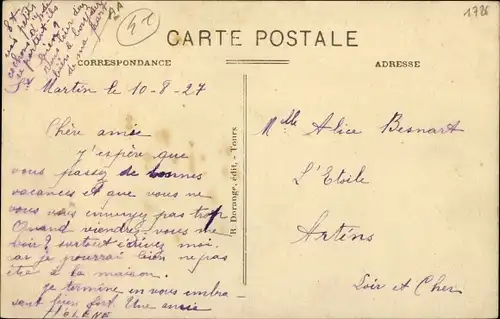 1786
41
CARTE POSTALE
CORRESPONDANCE
ADRESSE
Et
vos petits
cochons d'Inde
se portent-ils
bien?
bien le bonjour
de ma part
St Martin le 10-8-27
Chère amie
j'espère que
vous passez de bonnes
vacances et que vous ne
vous ennuyez pas trop
Quand viendrez-vous me
voir? surtout écrivez moi
car je pourrai bien ne pas
être à la maison.
je termine en vous embra
sant bien fort. Une amie
HELENE
R Dorange, édit. - Tours
Melle Alice Besnart
L'Etoile
Artins
Loir et Cher